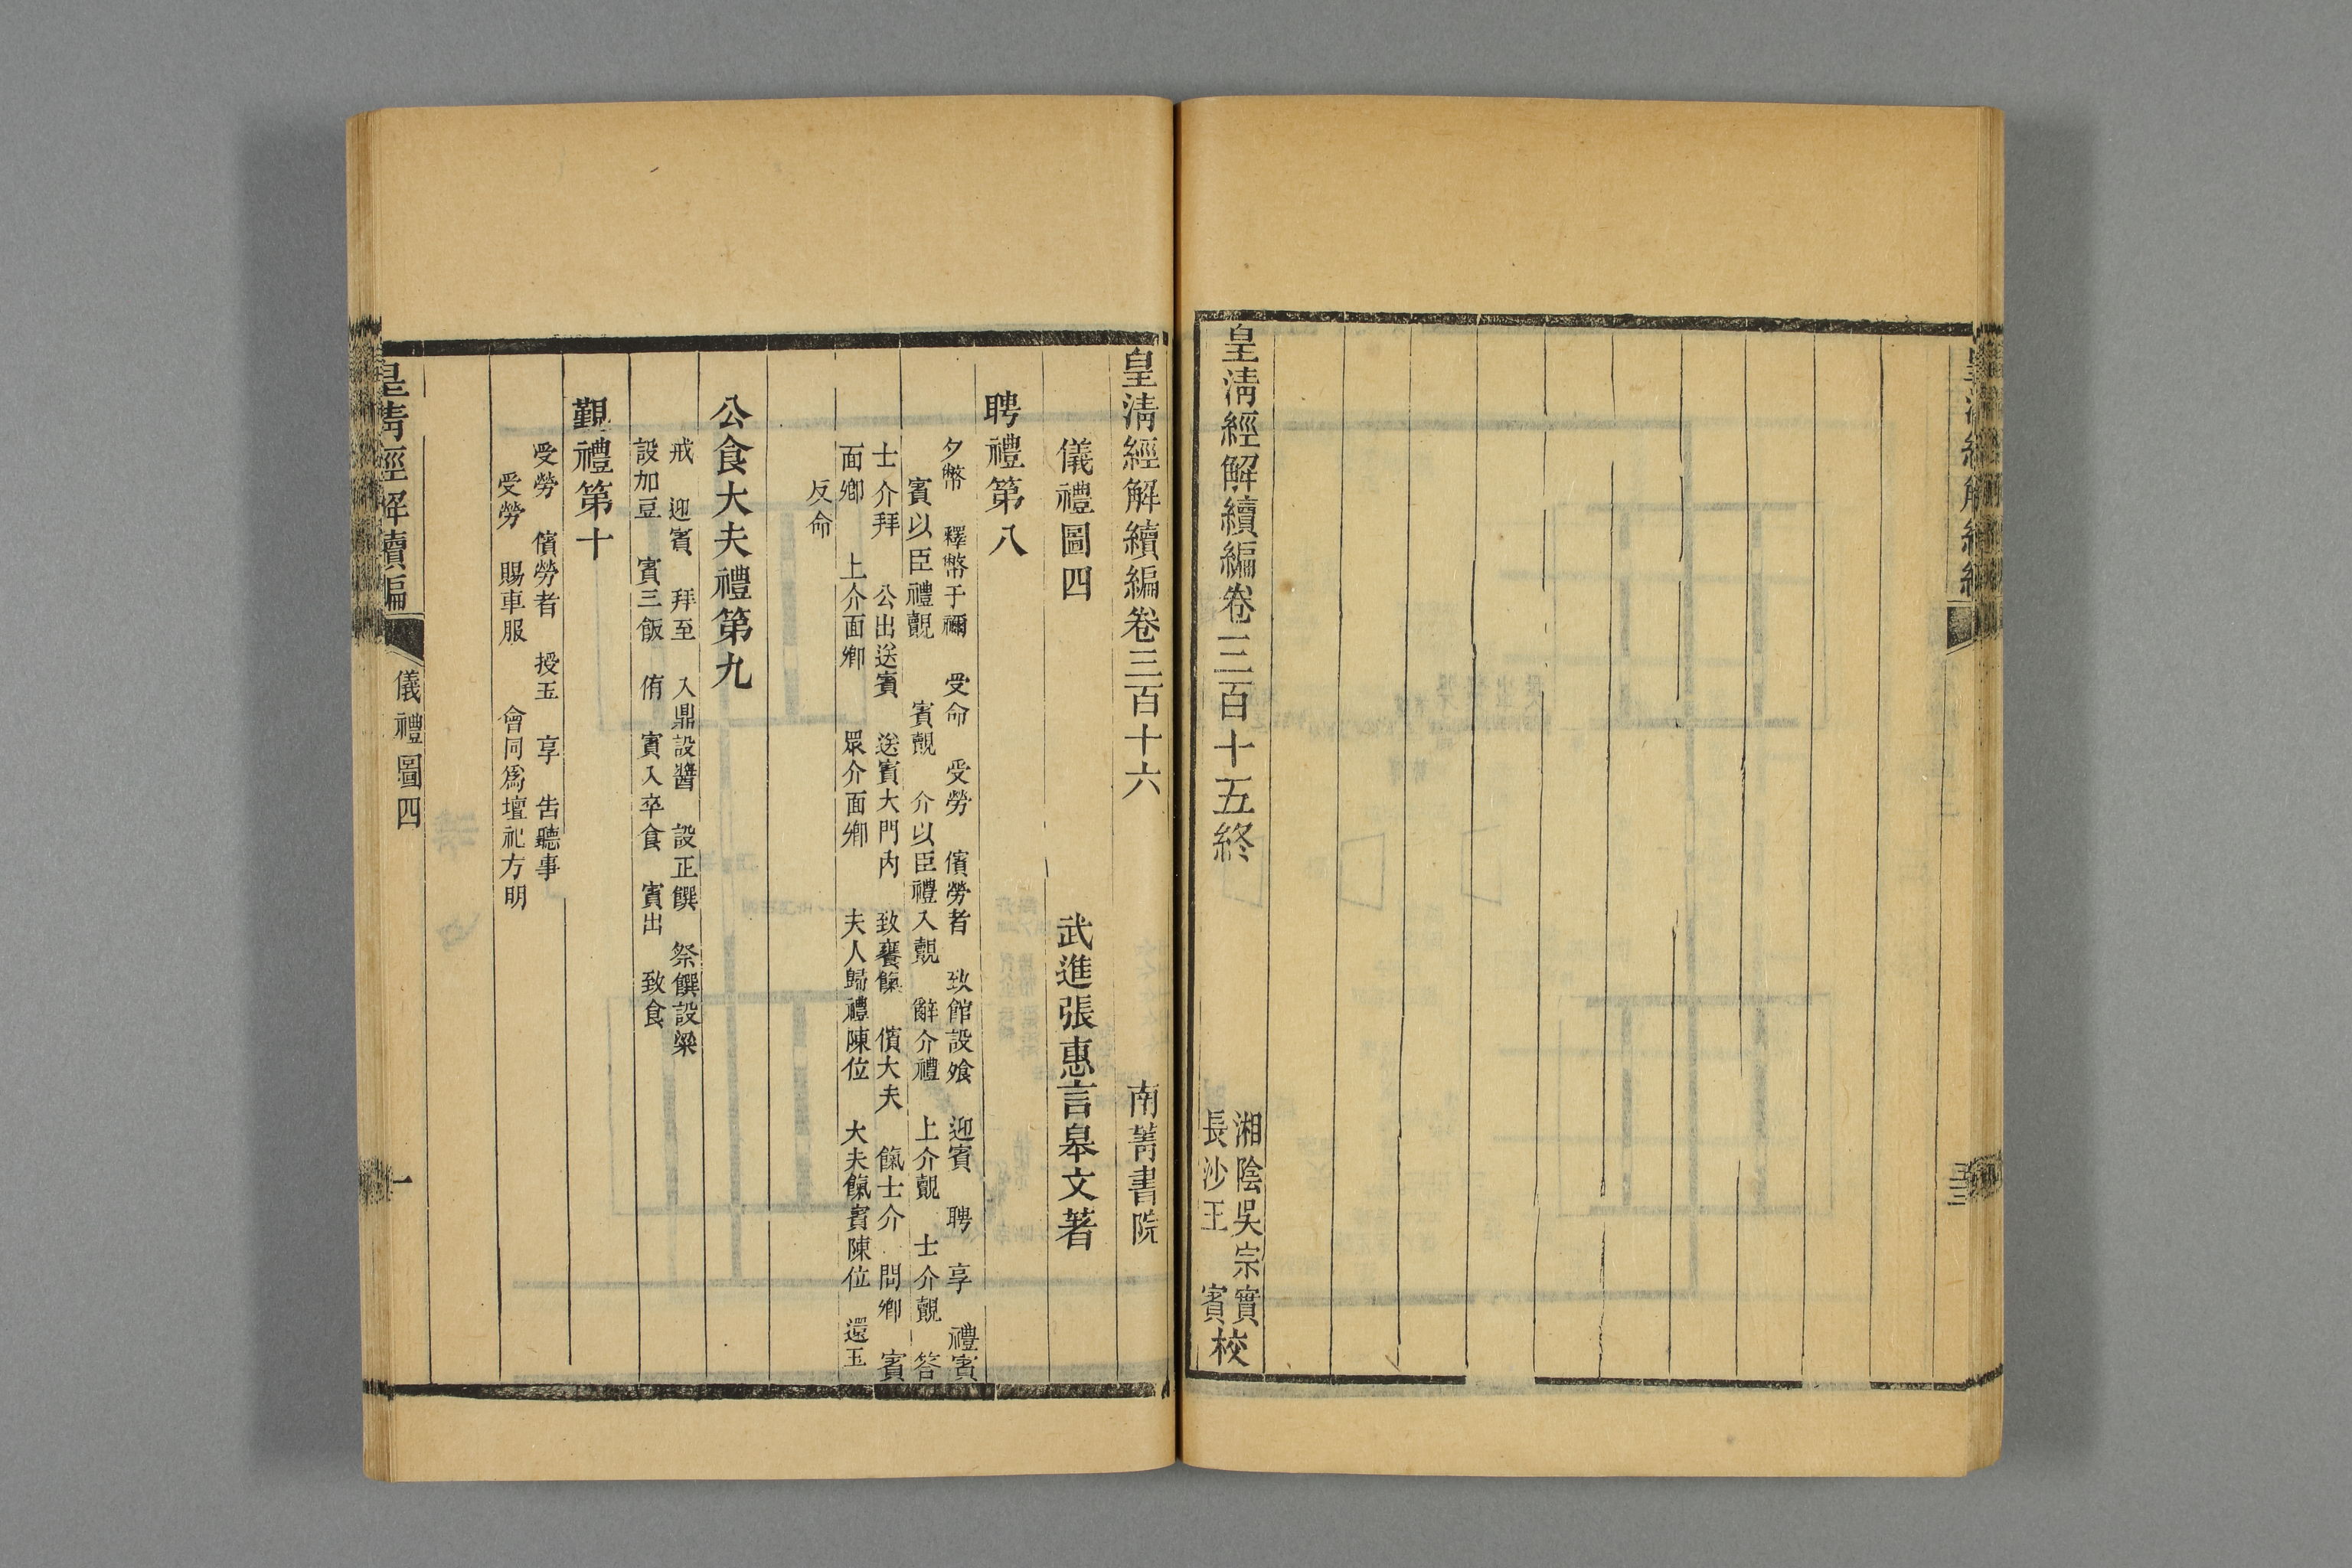 皇清經解續編
皇清經解續編卷三百十五終
湘陰吳宗實
長沙王　賓
校
皇清經解續編卷三百十六　南菁書院
儀禮圖四　武進張惠言皋文著
聘禮第八
夕幣　釋幣于禰　受命　受勞　儐勞者　致館設飧　迎賓　聘　享　禮賓
賓以臣禮覿　賓覿　介以臣禮入覿　辭介禮　上介覿　士介覿　答
士介拜　公出送賓　送賓大門內　致饔餼　儐大夫　餼士介　問卿　賓
面卿　上介面卿　眾介面卿　夫人歸禮陳位　大夫餼賓陳位　還玉
反命
公食大夫禮第九
戒　迎賓　拜至　入鼎設醬　設正饌　祭饌設粱
設加豆　賓三飯　侑　賓入卒食　賓出　致食
覲禮第十
受勞　儐勞者　授玉　享　告聽事
受勞　賜車服　會同爲壇祀方明
皇清經解續編
儀禮圖四
一